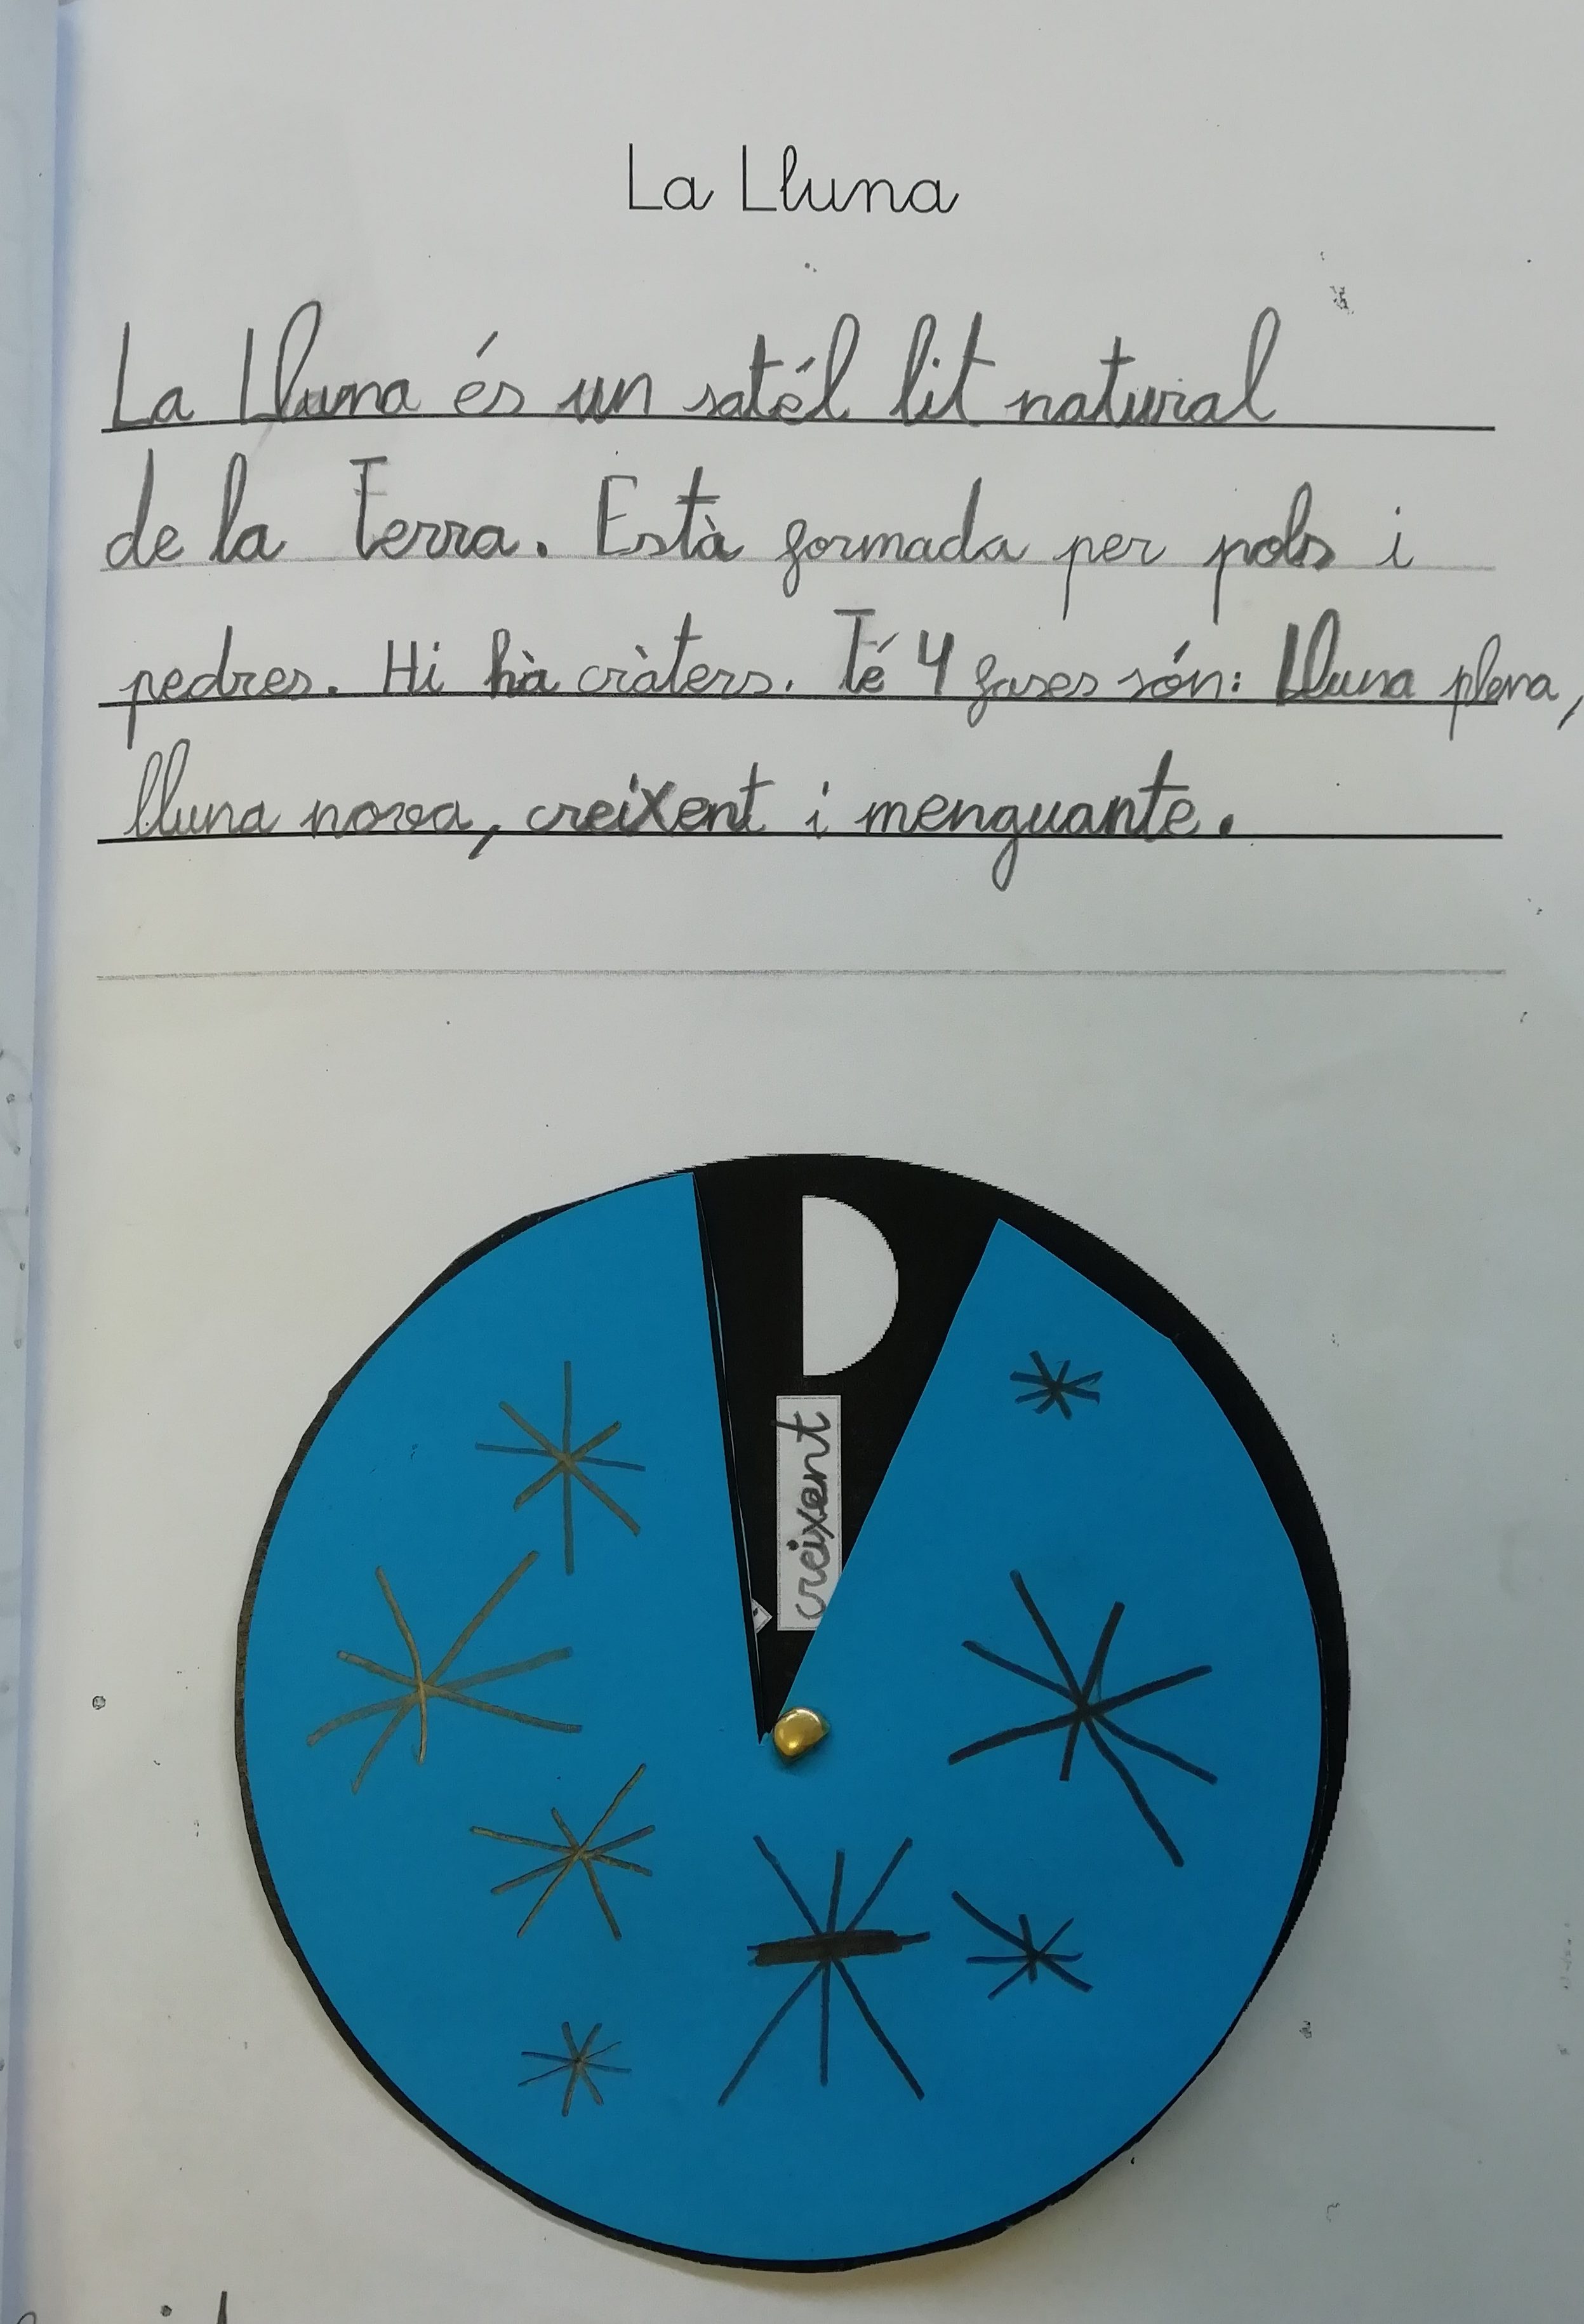 La Lluna
La Lluna és un satél lit natural
de la Terra. Està formada per pols i
pedres. Hi hà cràters. Té 4 fases són: Lluna plena,
lluna nova, creixent i menguante.
creixent